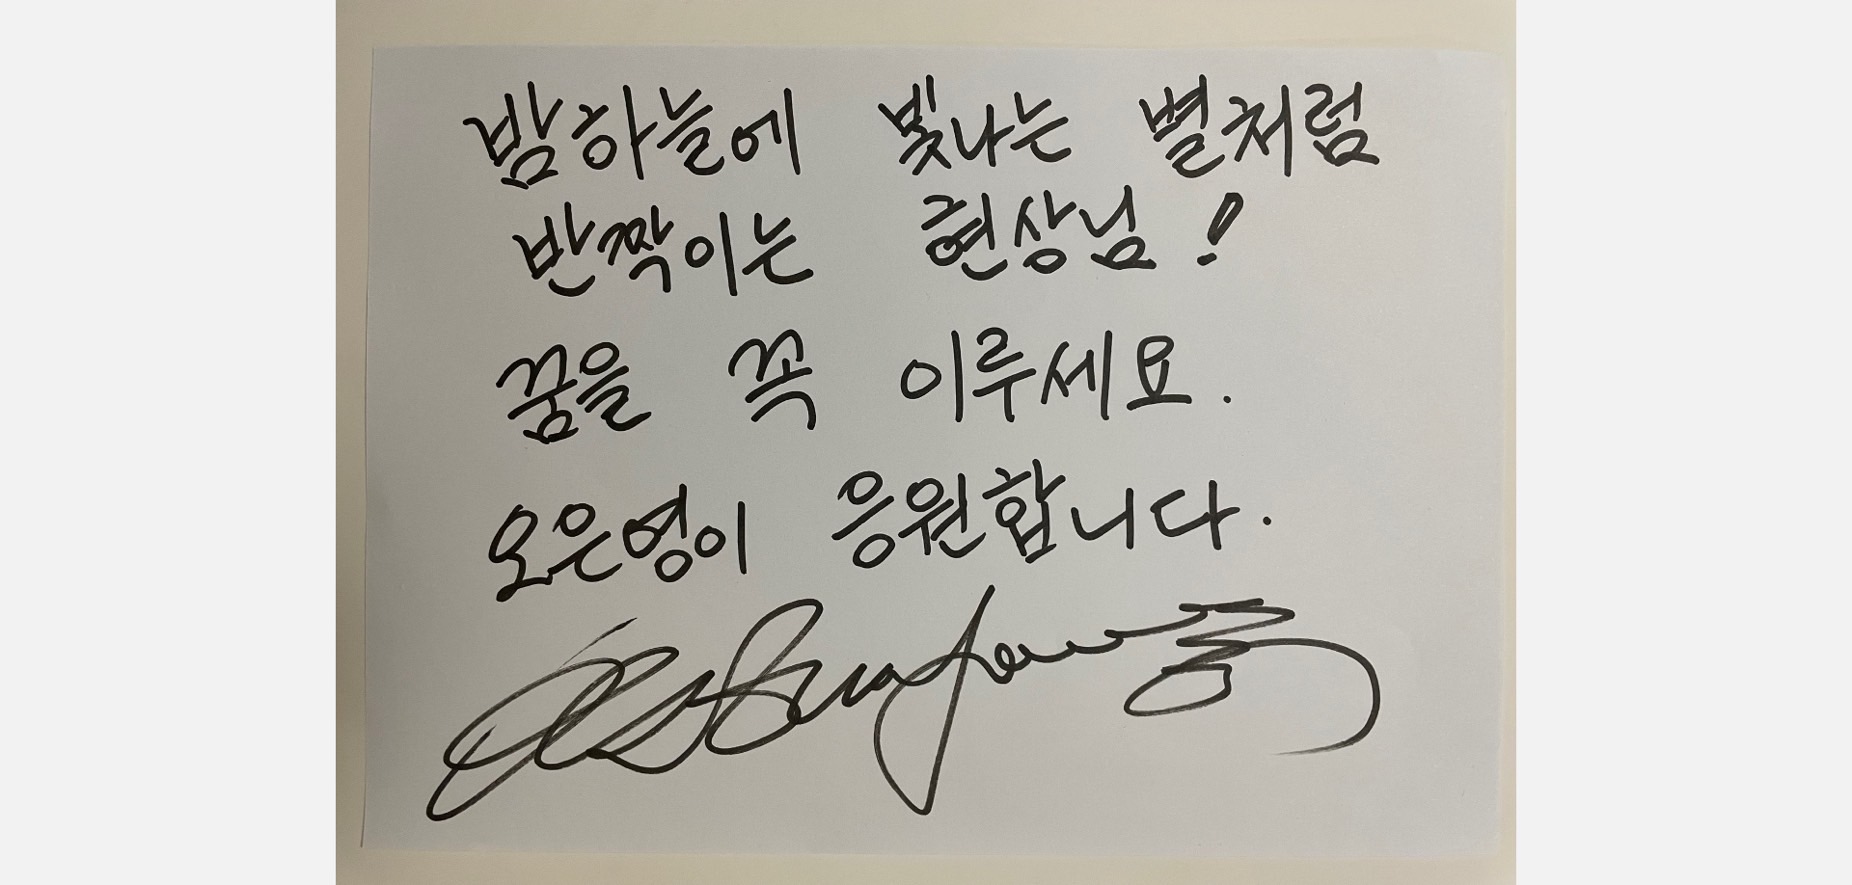 밤하늘에 빛나는 별처럼
반짝이는 현상님!
꿈을 꼭 이루세요.
오은영이 응원합니다.